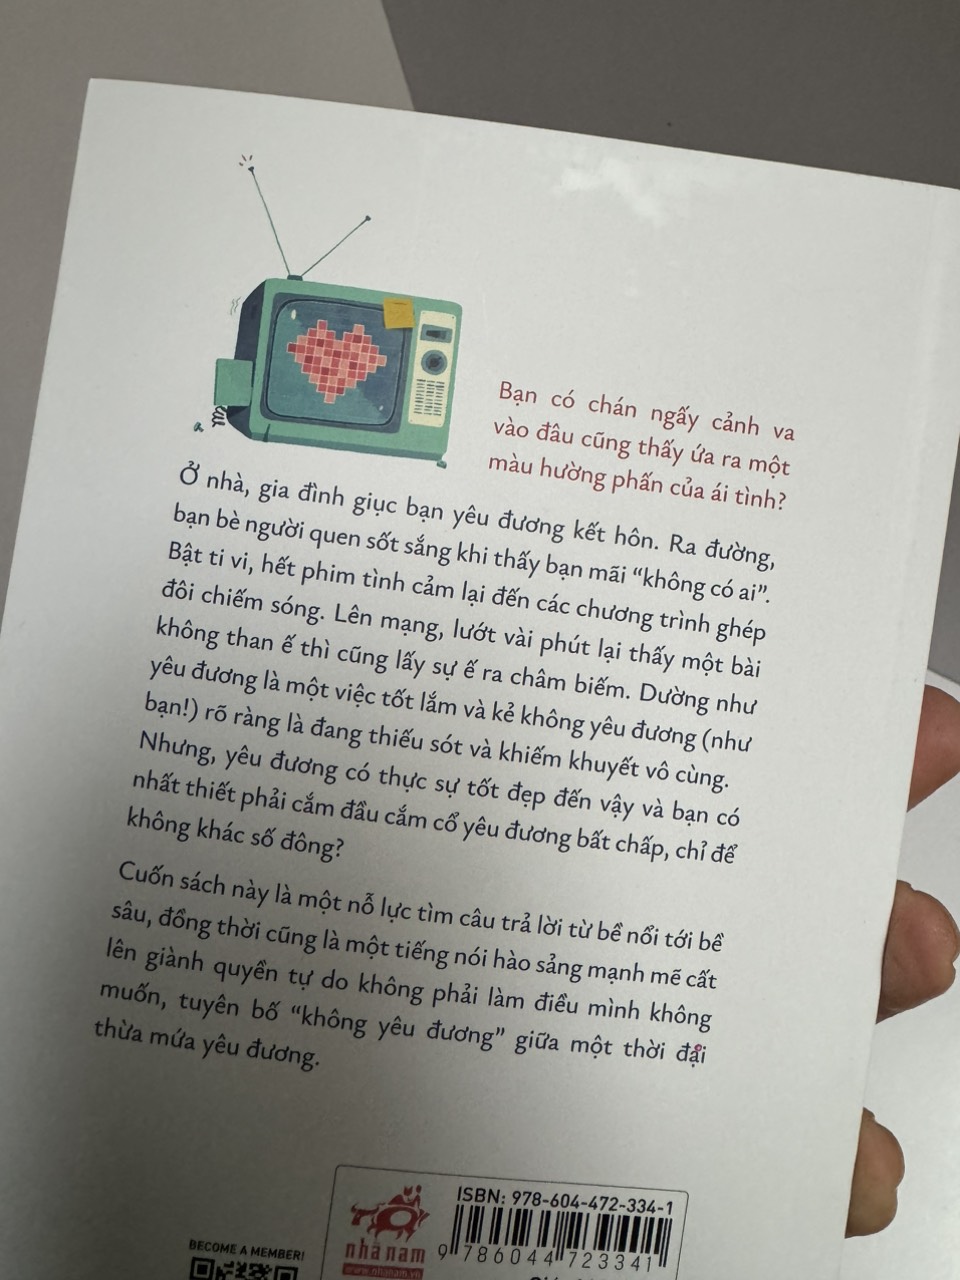 Bạn có chán ngấy cảnh va
vào đâu cũng thấy ứa ra một
màu hường phấn của ái tình?
Ở nhà, gia đình giục bạn yêu đương kết hôn. Ra đường,
bạn bè người quen sốt sắng khi thấy bạn mãi “không có ai”.
Bật ti vi, hết phim tình cảm lại đến các chương trình ghép
đôi chiếm sóng. Lên mạng, lướt vài phút lại thấy một bài
không than ế thì cũng lấy sự ế ra châm biếm. Dường như
yêu đương là một việc tốt lắm và kẻ không yêu đương (như
bạn!) rõ ràng là đang thiếu sót và khiếm khuyết vô cùng.
Nhưng, yêu đương có thực sự tốt đẹp đến vậy và bạn có
nhất thiết phải cắm đầu cắm cổ yêu đương bất chấp, chỉ để
không khác số đông?
Cuốn sách này là một nỗ lực tìm câu trả lời từ bề nổi tới bề
sâu, đồng thời cũng là một tiếng nói hào sảng mạnh mẽ cất
lên giành quyền tự do không phải làm điều mình không
muốn, tuyên bố “không yêu đương” giữa một thời đại
thừa mứa yêu đương.
BECOME A MEMBER!
nhã nam
www.nhanam.vn
ISBN: 978-604-472-334-1
9 786044 723341